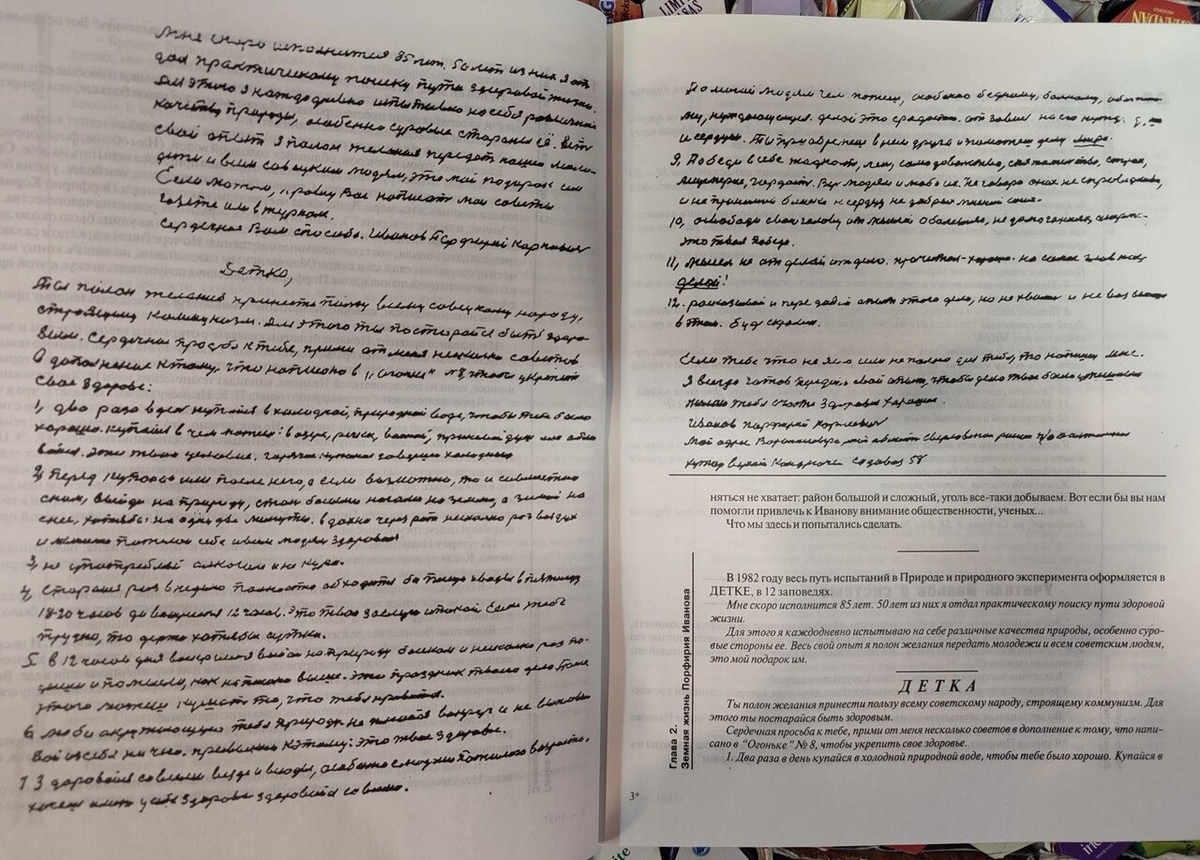 Мне скоро исполнится 85 лет. 50 лет из них я от
дал практическому поиску пути здоровой жизни.
Для этого я каждодневно испытываю на себя различной
качества природы, особенно суровые стороны её. Весь
свой опыт я полон желания передать нашей моло-
дежи и всем советским людям, это мой подарок им
газете или в журнал.
Сердечное Вам спасибо. Иванов Порфирий Корнеевич
Детка,
Ты полон желания принести пользу всему советскому народу,
строящему коммунизм. Для этого ты постарайся быть здоро
вым. Сердечная просьба к тебе, прими от меня несколько советов
в дополнение к тому, что написано в „Огоньке" №8, чтобы укрепить
свое здоровье:
1, два раза в день купайся в холодной, природной воде, чтобы тебе было
хорошо. Купайся в чем можешь: в озере, речке, ванной,
Горячее купание завершай холодным
2, Перед купанием или после него, а если возможно, то и совместно
с ним, выйди на природу, стань босыми ногами на землю, а зимой на
снег, хотя бы на одну две минуты.
3, не употребляй алкоголя и не кури.
4,
18-20 часов до воскресенья 12 часов. Это твоя заслуга и покой Если тебе
трудно, то держи хотя бы сутки.
5. В 12 часов дня воскресенья выйди на природу босиком и несколько раз по-
дыши и помысли, как написано выше. Это праздник твоего дела, После
этого можешь кушать то, что тебе нравится.
6 Люби окружающую тебя природу. Не плюйся вокруг и не выплевы
вай из себя ничего. Привыкни к этому: это твое здоровье.
7 Здоровайся со всеми везде и всюду, особенно с людьми пожилого возраста,
хочешь иметь у себя здоровье здоровайся со всеми.
Помогай людям чем можешь, особенно бедному, больному,
и сердцем. Ты приобретешь в нем друга и поможешь делу мира.
9. Победи в себе жадность, лень, самодовольство, стяжательство, страх,
лицемерие, гордость. Верь людям и люби их. Не говори о них не справедливо,
и не принимай близко к сердцу не добрых мнений о них.
10, Освободи свою голову от мыслей о болезнях, недомоганиях, смерти-
это твоя Победа.
11, Мысль не отделяй от дело. Прочитал-хорошо. но самое главное
делай!
12. Рассказывай и передавай опыт этого дела, но не хвались и не возвышайся
в этом. Будь скромен.
Если тебе что не ясно или не полно для тебя, то напиши мне.
Я всегда готов передать свой опыт, чтобы дело твое было
желаю тебе счастья здоровья хорошего.
Иванов Порфирий Корнеевич
Мой адрес Ворошиловградской области Свердловский район п/о
хутор Верхний Кондрючий Садовая 58
няться не хватает: район большой и сложный, уголь все-таки добываем. Вот если бы вы нам
помогли привлечь к Иванову внимание общественности, ученых...
Что мы здесь и попытались сделать.
В 1982 году весь путь испытаний в Природе и природного эксперимента оформляется в
ДЕТКЕ, в 12 заповедях.
Мне скоро исполнится 85 лет. 50 лет из них я отдал практическому поиску пути здоровой
жизни.
Для этого я каждодневно испытываю на себе различные качества природы, особенно суро-
вые стороны ее. Весь свой опыт я полон желания передать молодежи и всем советским людям,
это мой подарок им.
ДЕТКА
Ты полон желания принести пользу всему советскому народу, строящему коммунизм. Для
этого ты постарайся быть здоровым.
Сердечная просьба к тебе, прими от меня несколько советов в дополнение к тому, что напи-
сано в "Огоньке" № 8, чтобы укрепить свое здоровье.
1. Два раза в день купайся в холодной природной воде, чтобы тебе было хорошо. Купайся в
Глава 2.
Земная жизнь Порфирия Иванова
3*